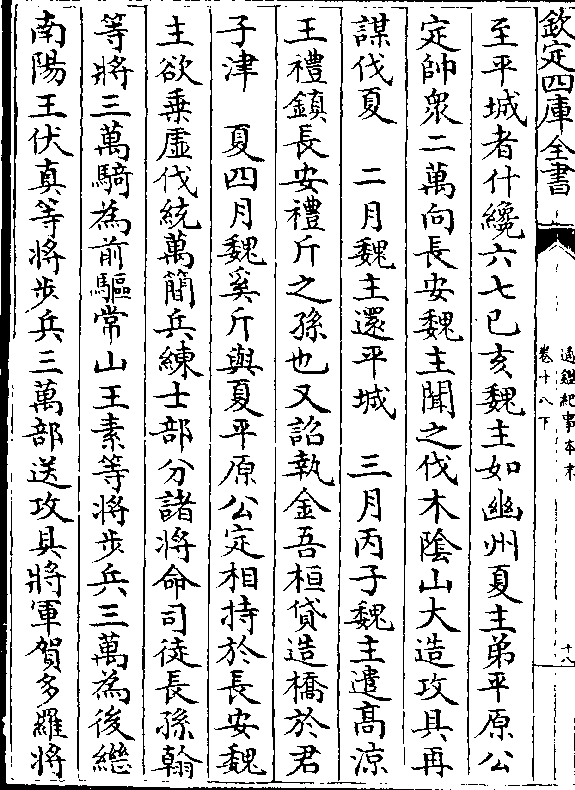 欽定四庫全書
通鑑紀事本末
卷十八下
十八
至平城者什纔六七己亥魏主如幽州夏主弟平原公
定帥衆二萬向長安魏主聞之伐木隂山大造攻具再
謀伐夏　二月魏主還平城　三月丙子魏主遣髙涼
王禮鎮長安禮斤之孫也又詔執金吾桓貸造橋於君
子津　夏四月魏奚斤與夏平原公定相持於長安魏
主欲乗虛伐統萬簡兵練士部分諸將命司徒長孫翰
等將三萬騎為前驅常山王素等將步兵三萬為後繼
南陽王伏真等將步兵三萬部送攻具將軍賀多羅將